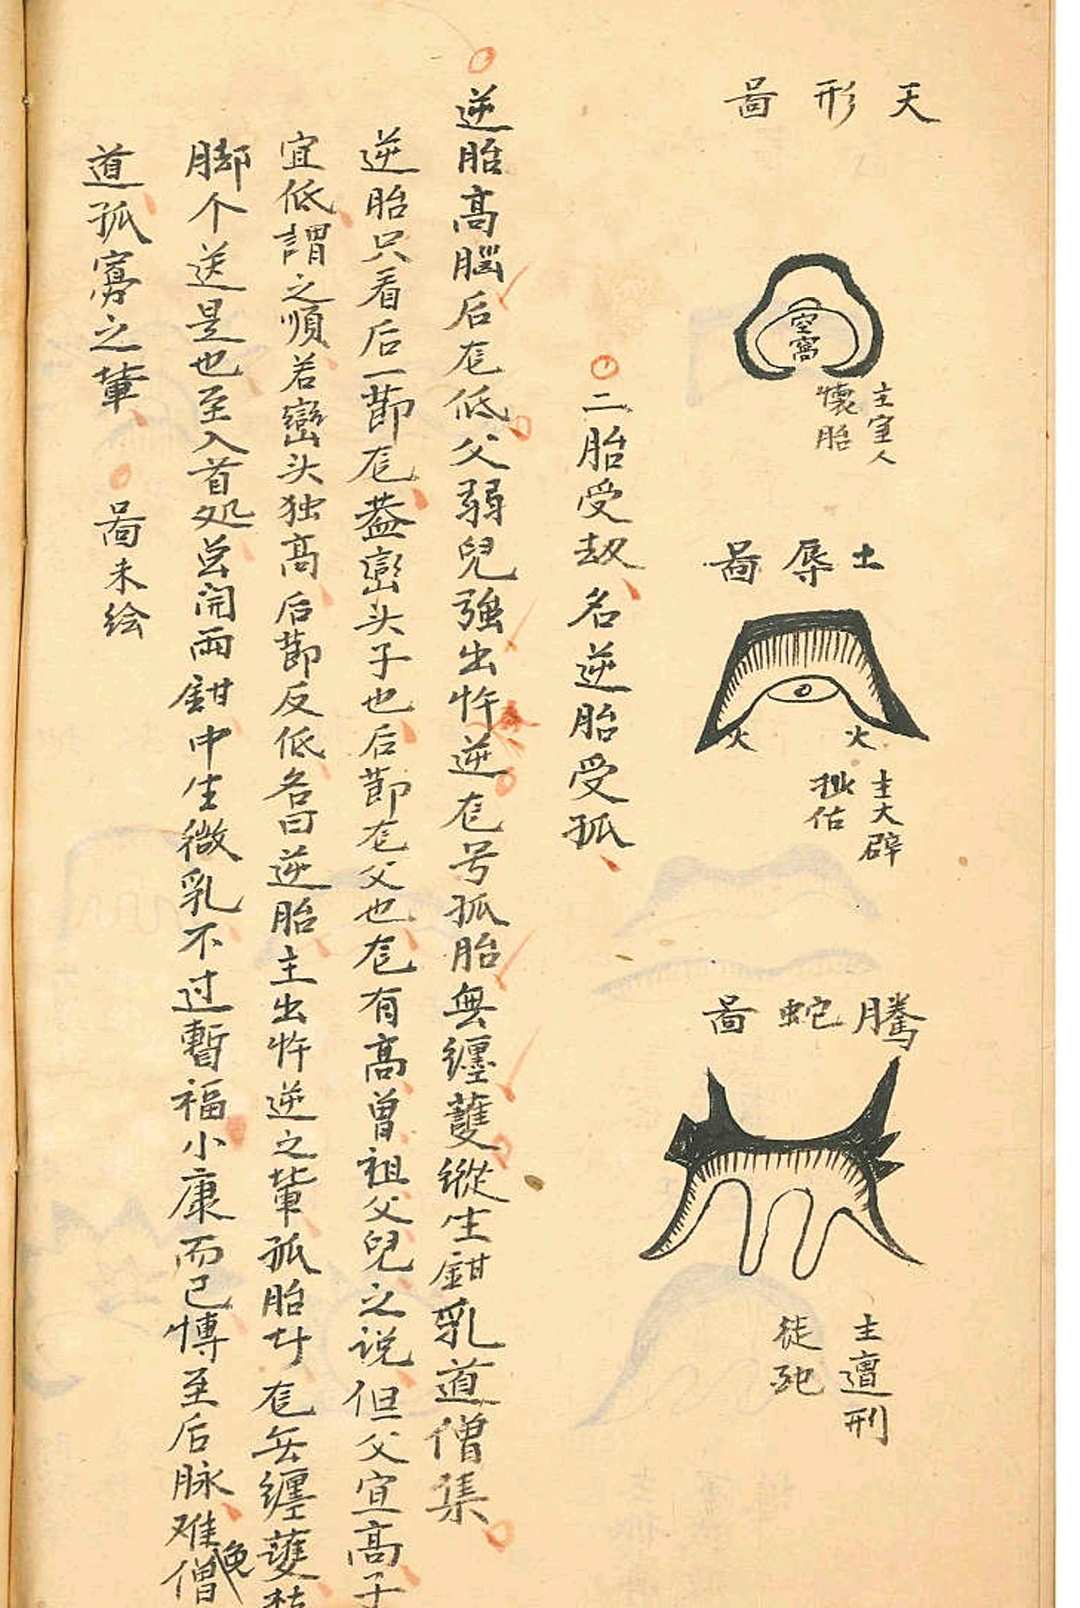 天形圖
空窩
主室人
懷胎
土辱圖
火
火
主大辟
騰蛇圖
主遭刑
徒死
二胎受刼名逆胎受孤
逆胎高腦后龙低父弱兒強出忤逆龙号孤胎無缠護縱生鉗乳道僧集
逆胎只看后一節龙葢巒头子也后節龙父也龙有高曾祖父兒之说但父宜高子
宜低謂之順若巒头独高后節反低名曰逆胎主出忤逆之輩孤胎廾龙無纏護
脚个送是也至入首処总開兩鉗中生微乳不过暫福小康而已博至后脉难免僧
道孤寡之輩
圖未绘